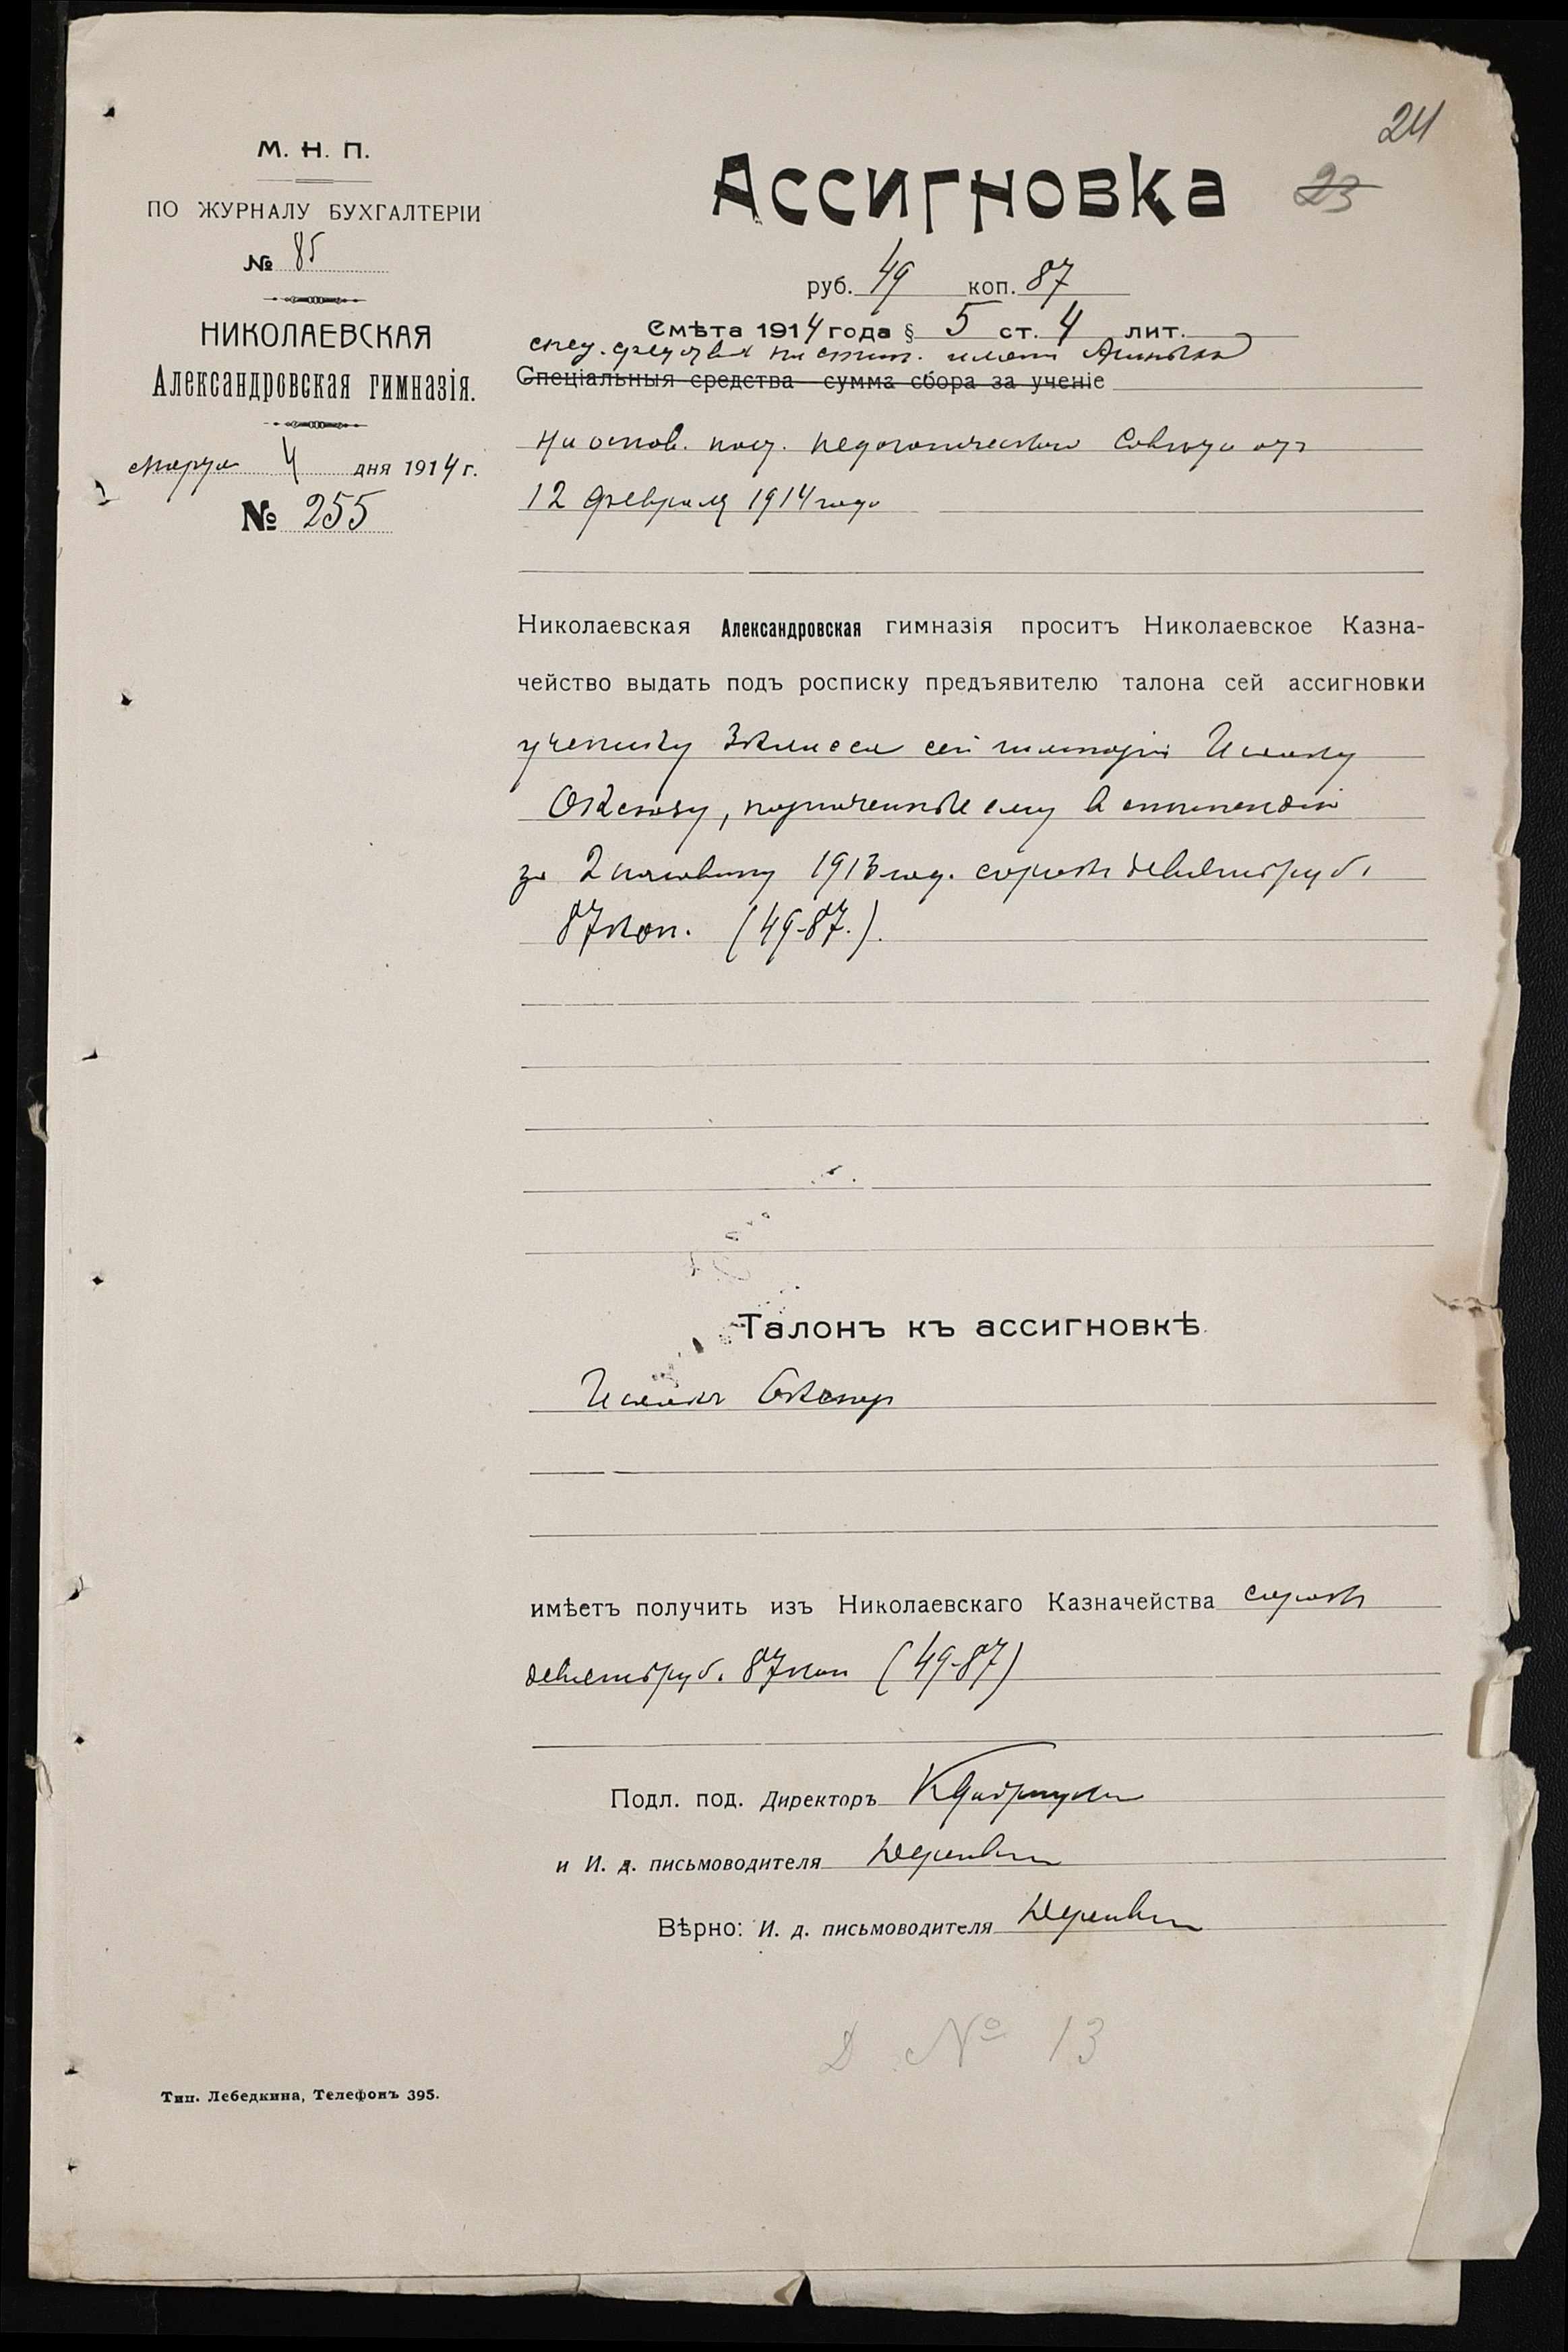 24
23
М. Н. П.
ПО ЖУРНАЛУ БУХГАЛТЕРІИ
№ 85
НИКОЛАЕВСКАЯ
Александровская гимназія.
Марта 4 дня 1914 г.
№ 255
Ассигновка
руб. 49 коп. 87
Смѣта 1914 года § 5 ст. 4 лит.
спец. средства на стип. имени
Спеціальныя средства сумма сбора за ученіе
На основ. пост. педагогическаго Совѣта отъ
12 февраля 1914 года
Николаевская Александровская гимназія проситъ Николаевское Казна-
чейство выдать подъ росписку предъявителю талона сей ассигновки
ученику 3 класса сей гимназіи Исааку
назначенные ему въ стипендію
за 2 половину 1913 год. сорокъ девять руб.
87 коп. (49-87.).
Талонъ къ ассигновкѣ
Исаакъ
имѣетъ получить изъ Николаевскаго Казначейства сорокъ
девять руб. 87 коп (49-87)
Подл. под. Директоръ
и И. д. письмоводителя
Вѣрно: И. д. письмоводителя
№ 13
Тип. Лебедкина, Телефонъ 395.